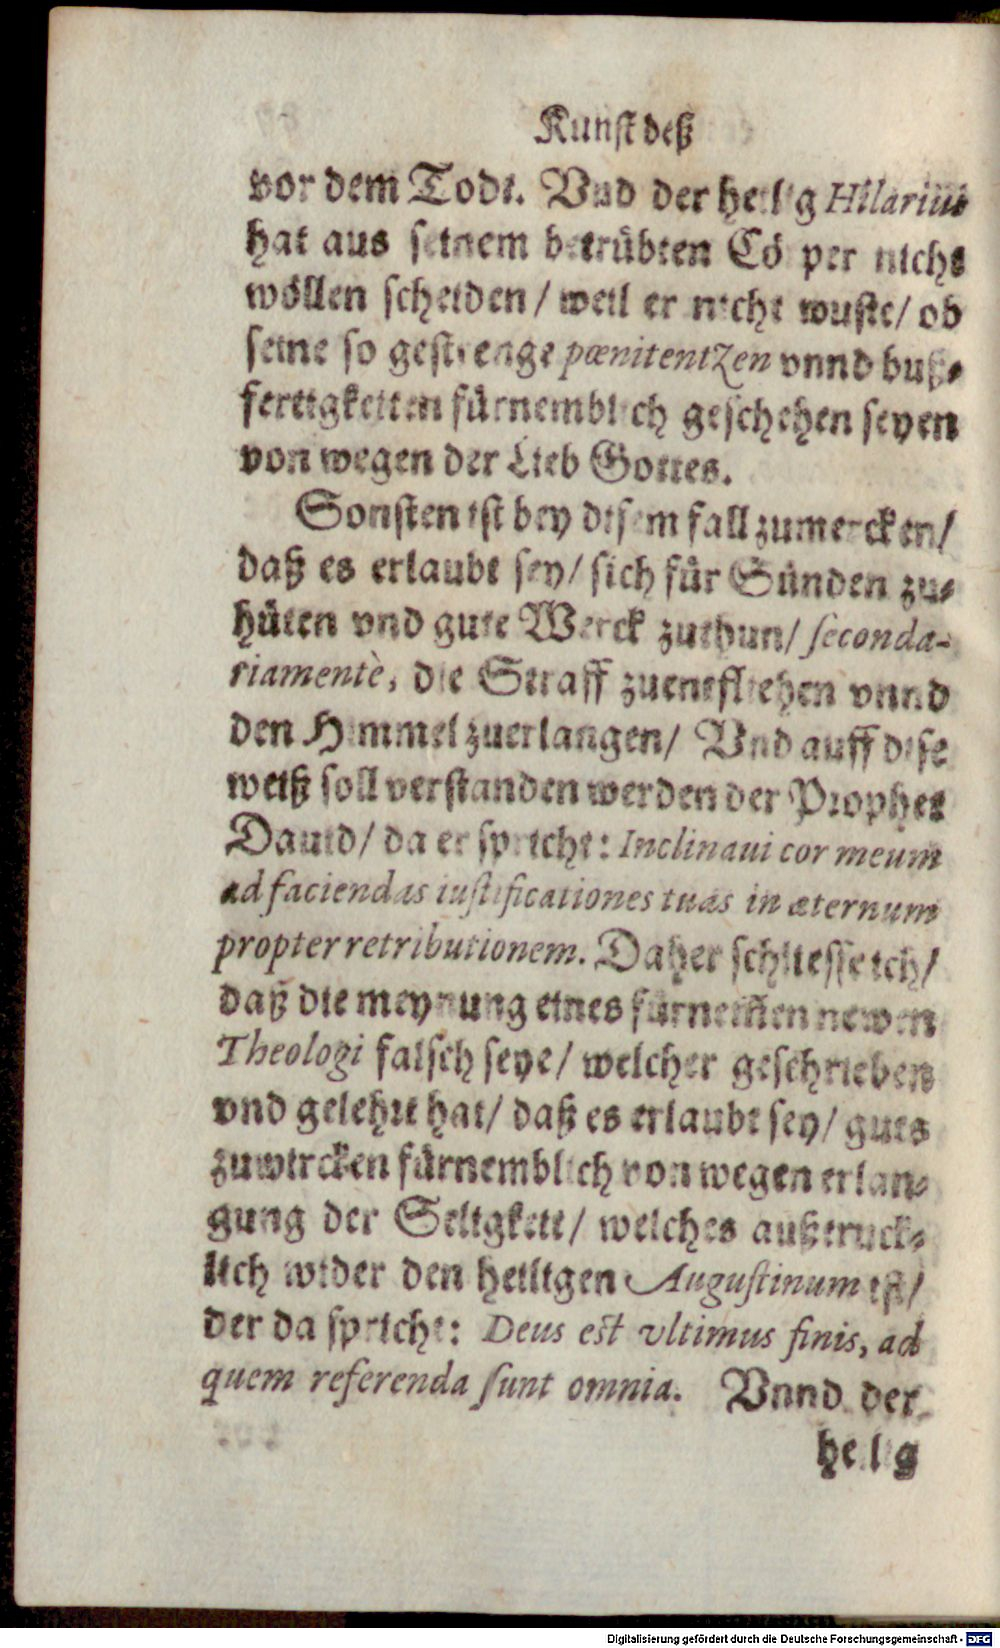 Kunst deß
vor dem Todt. Vnd der heilig Hilarius
hat aus seinem betrübten Cörper nichs
wöllen scheiden / weil er nicht wuste / ob
seine so gestrenge pœnitentzen vnnd buß-
fertigkeiten fürnemblich geschehen seyen
von wegen der Lieb Gottes.
Sonsten ist bey disem fall zumercken /
daß es erlaubt sey / sich für Sünden zu-
hüten vnd gute Werck zuthun / seconda-
riamentè, die Straff zuentfliehen vnnd
den Himmel zuerlangen / Vnd auff dise
weiß soll verstanden werden der Prophet
Dauid / da er spricht: Inclinaui cor meum
ad faciendas iustificationes tuas in æternum
propter retributionem. Daher schliesse ich /
daß die meynung eines fürnem̃en newen
Theologi falsch seye / welcher geschrieben
vnd gelehrt hat / daß es erlaubt sey / guts
zuwircken fürnemblich von wegen erlan-
gung der Seligkeit / welches außtruck-
lich wider den heiligen Augustinum ist /
der da spricht: Deus est vltimus finis, ad
quem referenda sunt omnia. Vnnd der
heilig
Digitalisierung gefördert durch die Deutsche Forschungsgemeinschaft - DFG